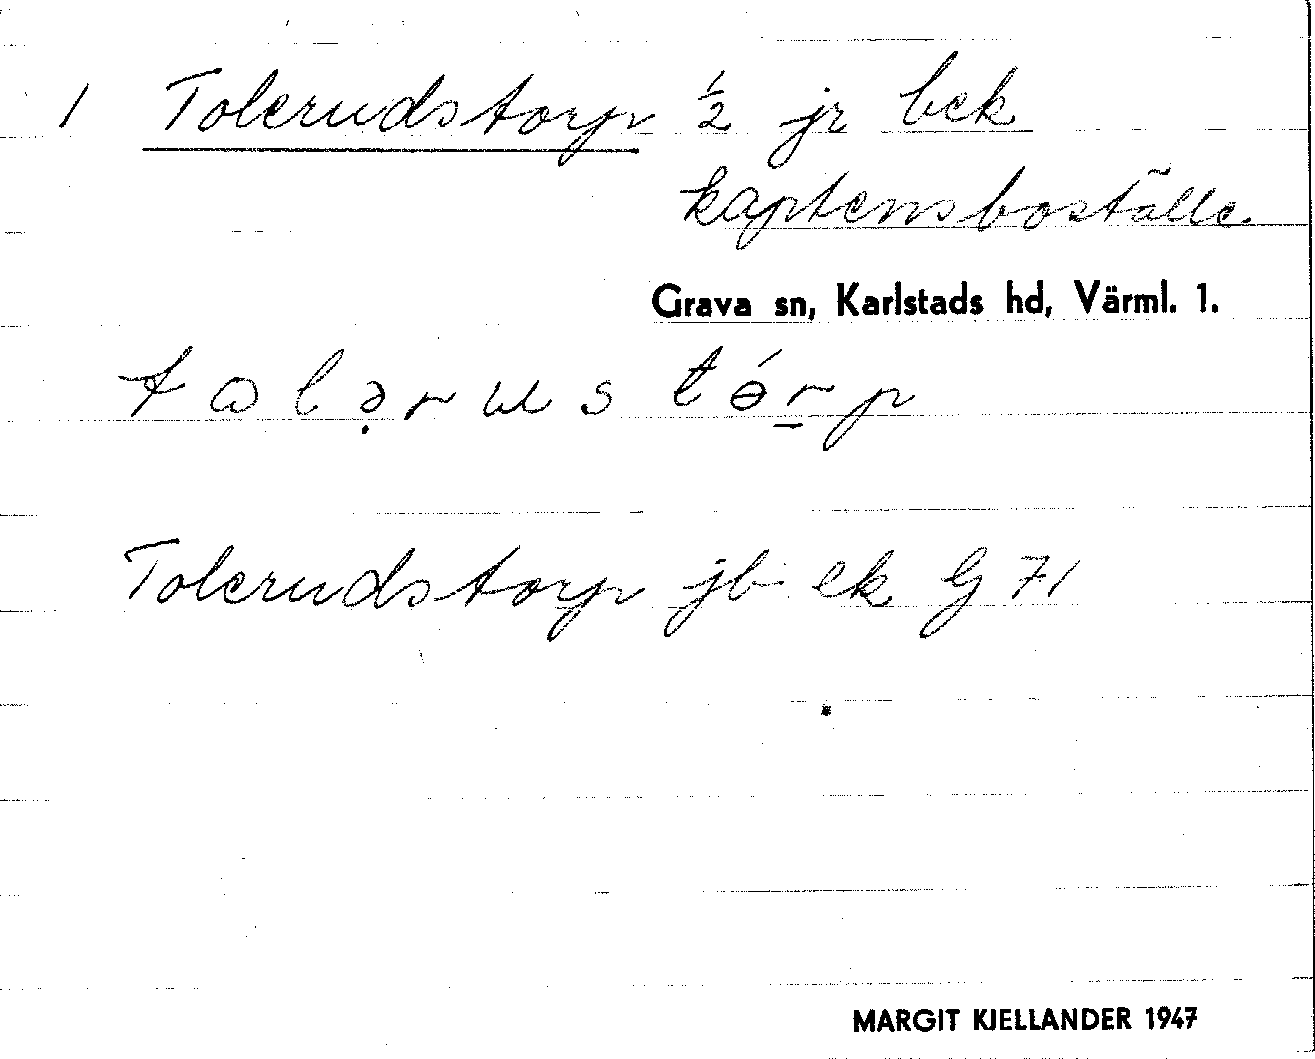 1 Tolerudstorp ½ jr bek
kaptensboställe.
Grava sn, Karlstads hd, Värml. 1.
tωlə̣rus tə́r̲p
Tolerudstorp jb ek G 71
MARGIT KJELLANDER 1947